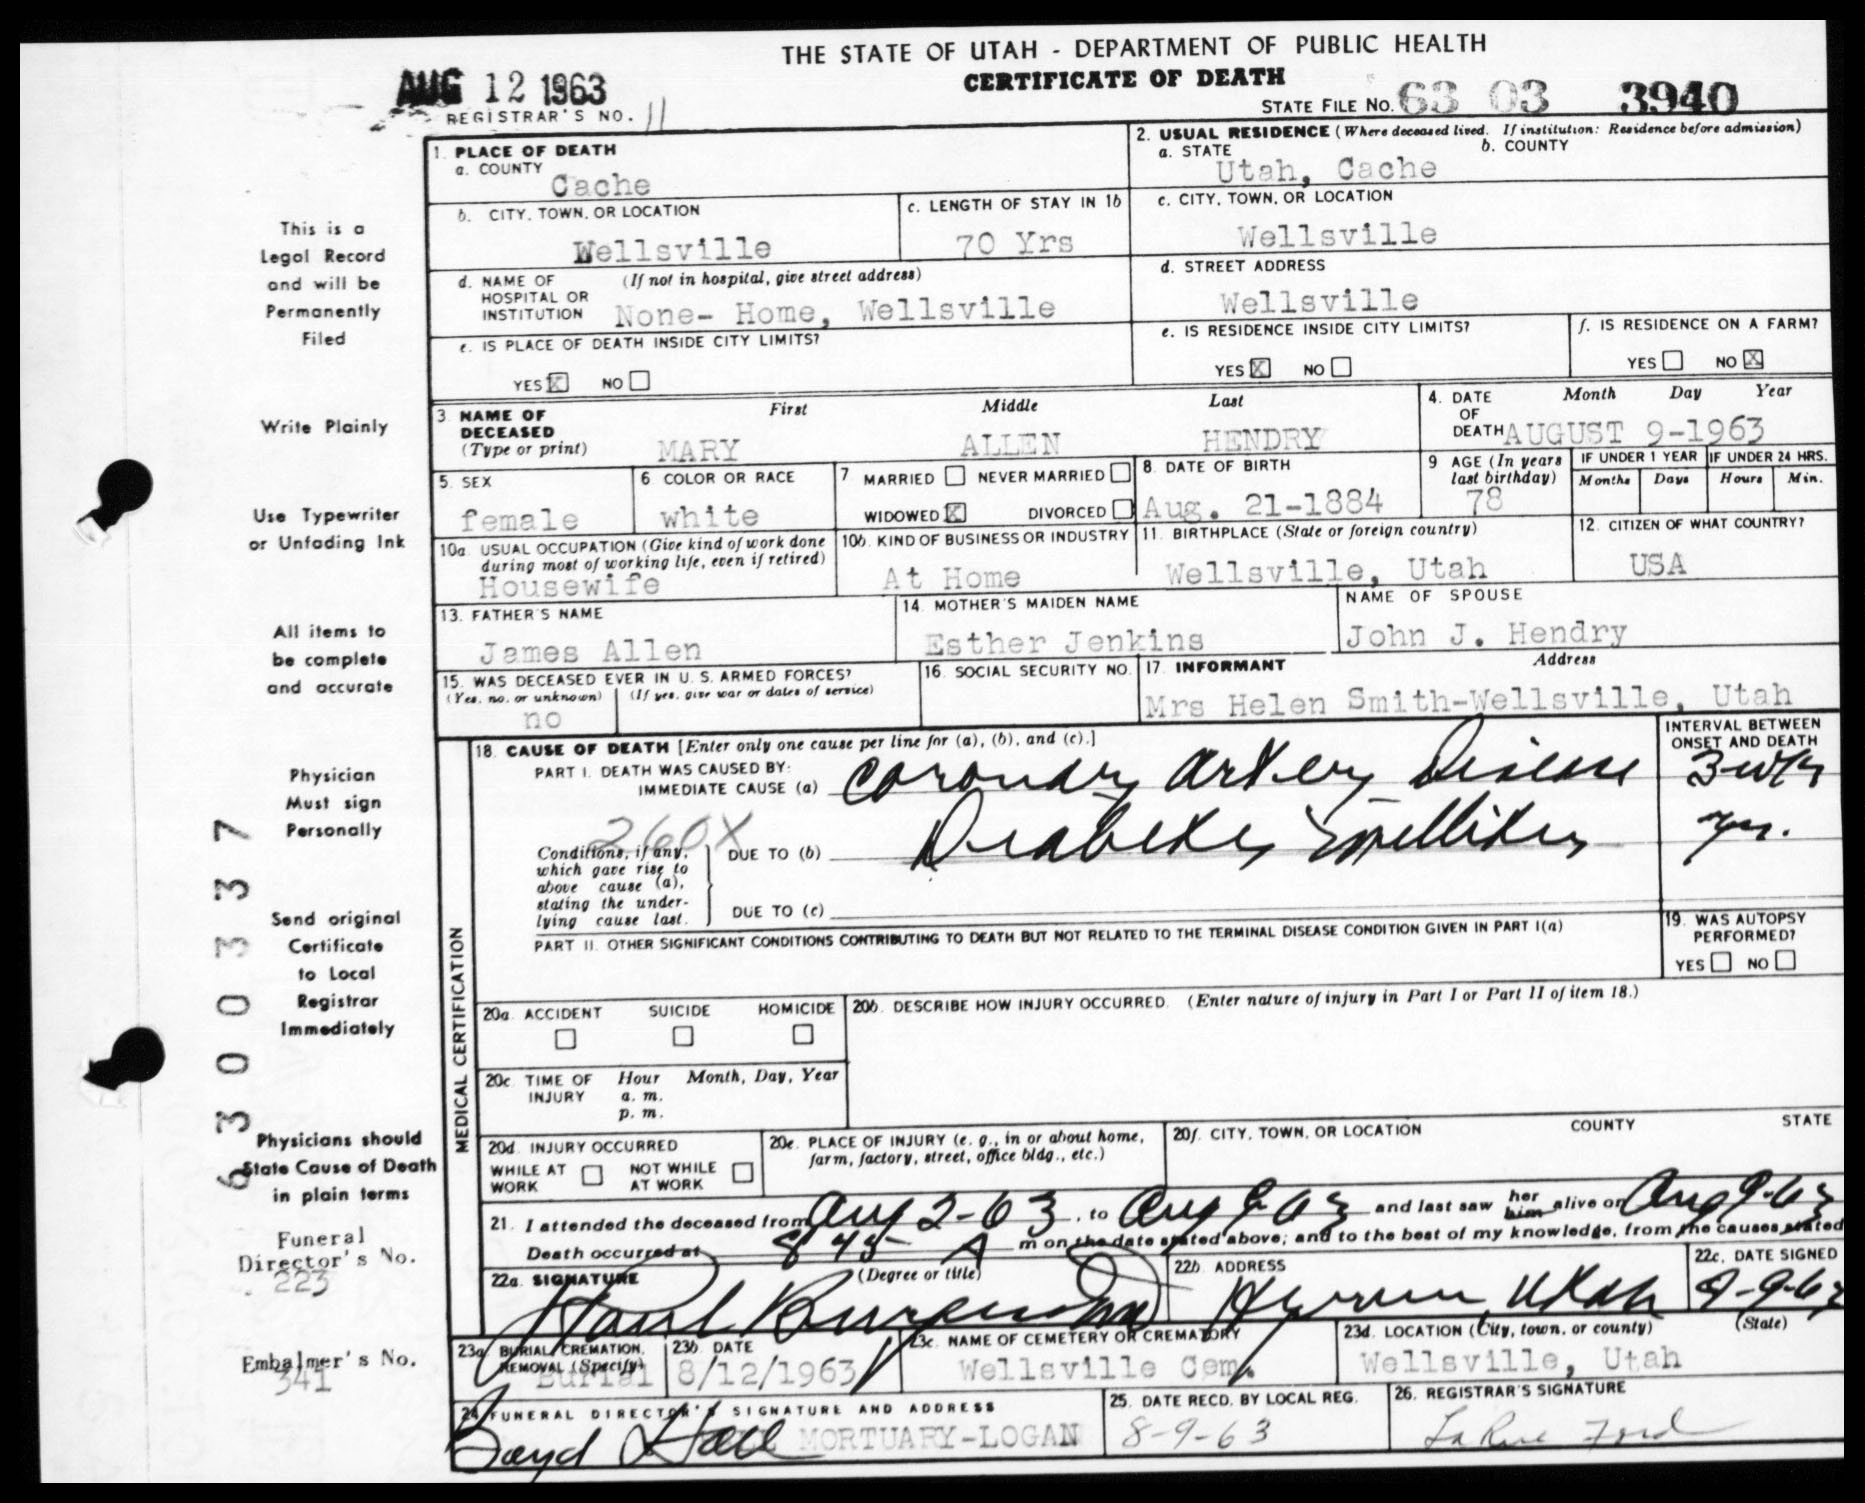 THE STATE OF UTAH - DEPARTMENT OF PUBLIC HEALTH
CERTIFICATE OF DEATH
AUG 12 1963
STATE FILE NO. 63 03 3940
REGISTRAR'S NO. 11
1. PLACE OF DEATH
a. COUNTY
Cache
2. USUAL RESIDENCE (Where deceased lived. If institution: Residence before admission)
a. STATE b. COUNTY
Utah, Cache
b. CITY, TOWN, OR LOCATION
Wellsville
c. LENGTH OF STAY IN 1b
70 Yrs
c. CITY, TOWN, OR LOCATION
Wellsville
d. NAME OF HOSPITAL OR INSTITUTION (If not in hospital, give street address)
None- Home, Wellsville
d. STREET ADDRESS
Wellsville
e. IS PLACE OF DEATH INSIDE CITY LIMITS?
YES X NO
e. IS RESIDENCE INSIDE CITY LIMITS?
YES X NO
f. IS RESIDENCE ON A FARM?
YES NO X
3. NAME OF DECEASED (Type or print)
First Middle Last
MARY ALLEN HENDRY
4. DATE OF DEATH Month Day Year
AUGUST 9-1963
5. SEX
female
6 COLOR OR RACE
white
7 MARRIED NEVER MARRIED
WIDOWED X DIVORCED
8. DATE OF BIRTH
Aug. 21-1884
9 AGE (In years last birthday)
78
IF UNDER 1 YEAR
Months Days
IF UNDER 24 HRS.
Hours Min.
10a. USUAL OCCUPATION (Give kind of work done during most of working life, even if retired)
Housewife
10b. KIND OF BUSINESS OR INDUSTRY
At Home
11. BIRTHPLACE (State or foreign country)
Wellsville, Utah
12. CITIZEN OF WHAT COUNTRY?
USA
13. FATHER'S NAME
James Allen
14. MOTHER'S MAIDEN NAME
Esther Jenkins
NAME OF SPOUSE
John J. Hendry
15. WAS DECEASED EVER IN U. S. ARMED FORCES?
(Yes, no, or unknown) (If yes, give war or dates of service)
no
16. SOCIAL SECURITY NO.
17. INFORMANT Address
Mrs Helen Smith-Wellsville, Utah
MEDICAL CERTIFICATION
18. CAUSE OF DEATH [Enter only one cause per line for (a), (b), and (c).]
INTERVAL BETWEEN ONSET AND DEATH
PART I. DEATH WAS CAUSED BY:
IMMEDIATE CAUSE (a) Coronary Artery Disease 3 wks
260X
Conditions, if any, which gave rise to above cause (a), stating the underlying cause last.
DUE TO (b) Diabetes Mellitus yrs.
DUE TO (c)
PART II. OTHER SIGNIFICANT CONDITIONS CONTRIBUTING TO DEATH BUT NOT RELATED TO THE TERMINAL DISEASE CONDITION GIVEN IN PART I(a)
19. WAS AUTOPSY PERFORMED?
YES NO
20a. ACCIDENT SUICIDE HOMICIDE
20b. DESCRIBE HOW INJURY OCCURRED. (Enter nature of injury in Part I or Part II of item 18.)
20c. TIME OF INJURY Hour Month, Day, Year
a. m.
p. m.
20d. INJURY OCCURRED
WHILE AT WORK NOT WHILE AT WORK
20e. PLACE OF INJURY (e. g., in or about home, farm, factory, street, office bldg., etc.)
20f. CITY, TOWN, OR LOCATION COUNTY STATE
21. I attended the deceased from Aug 2-63, to Aug 9 63 and last saw her him alive on Aug 9-63
Death occurred at 8 45 A m on the date stated above; and to the best of my knowledge, from the causes stated
22a. SIGNATURE (Degree or title)
22b. ADDRESS
Hyrum, Utah
22c. DATE SIGNED
8-9-63
23a BURIAL, CREMATION, REMOVAL (Specify)
Burial
23b. DATE
8/12/1963
23c. NAME OF CEMETERY OR CREMATORY
Wellsville Cem.
23d. LOCATION (City, town, or county) (State)
Wellsville, Utah
24 FUNERAL DIRECTOR'S SIGNATURE AND ADDRESS
Boyd Hall MORTUARY-LOGAN
25. DATE RECD. BY LOCAL REG.
8-9-63
26. REGISTRAR'S SIGNATURE
LaRue Ford
This is a
Legal Record
and will be
Permanently
Filed
Write Plainly
Use Typewriter
or Unfading Ink
All items to
be complete
and accurate
Physician
Must sign
Personally
Send original
Certificate
to Local
Registrar
Immediately
Physicians should
State Cause of Death
in plain terms
Funeral
Director's No.
223
Embalmer's No.
341
63030337